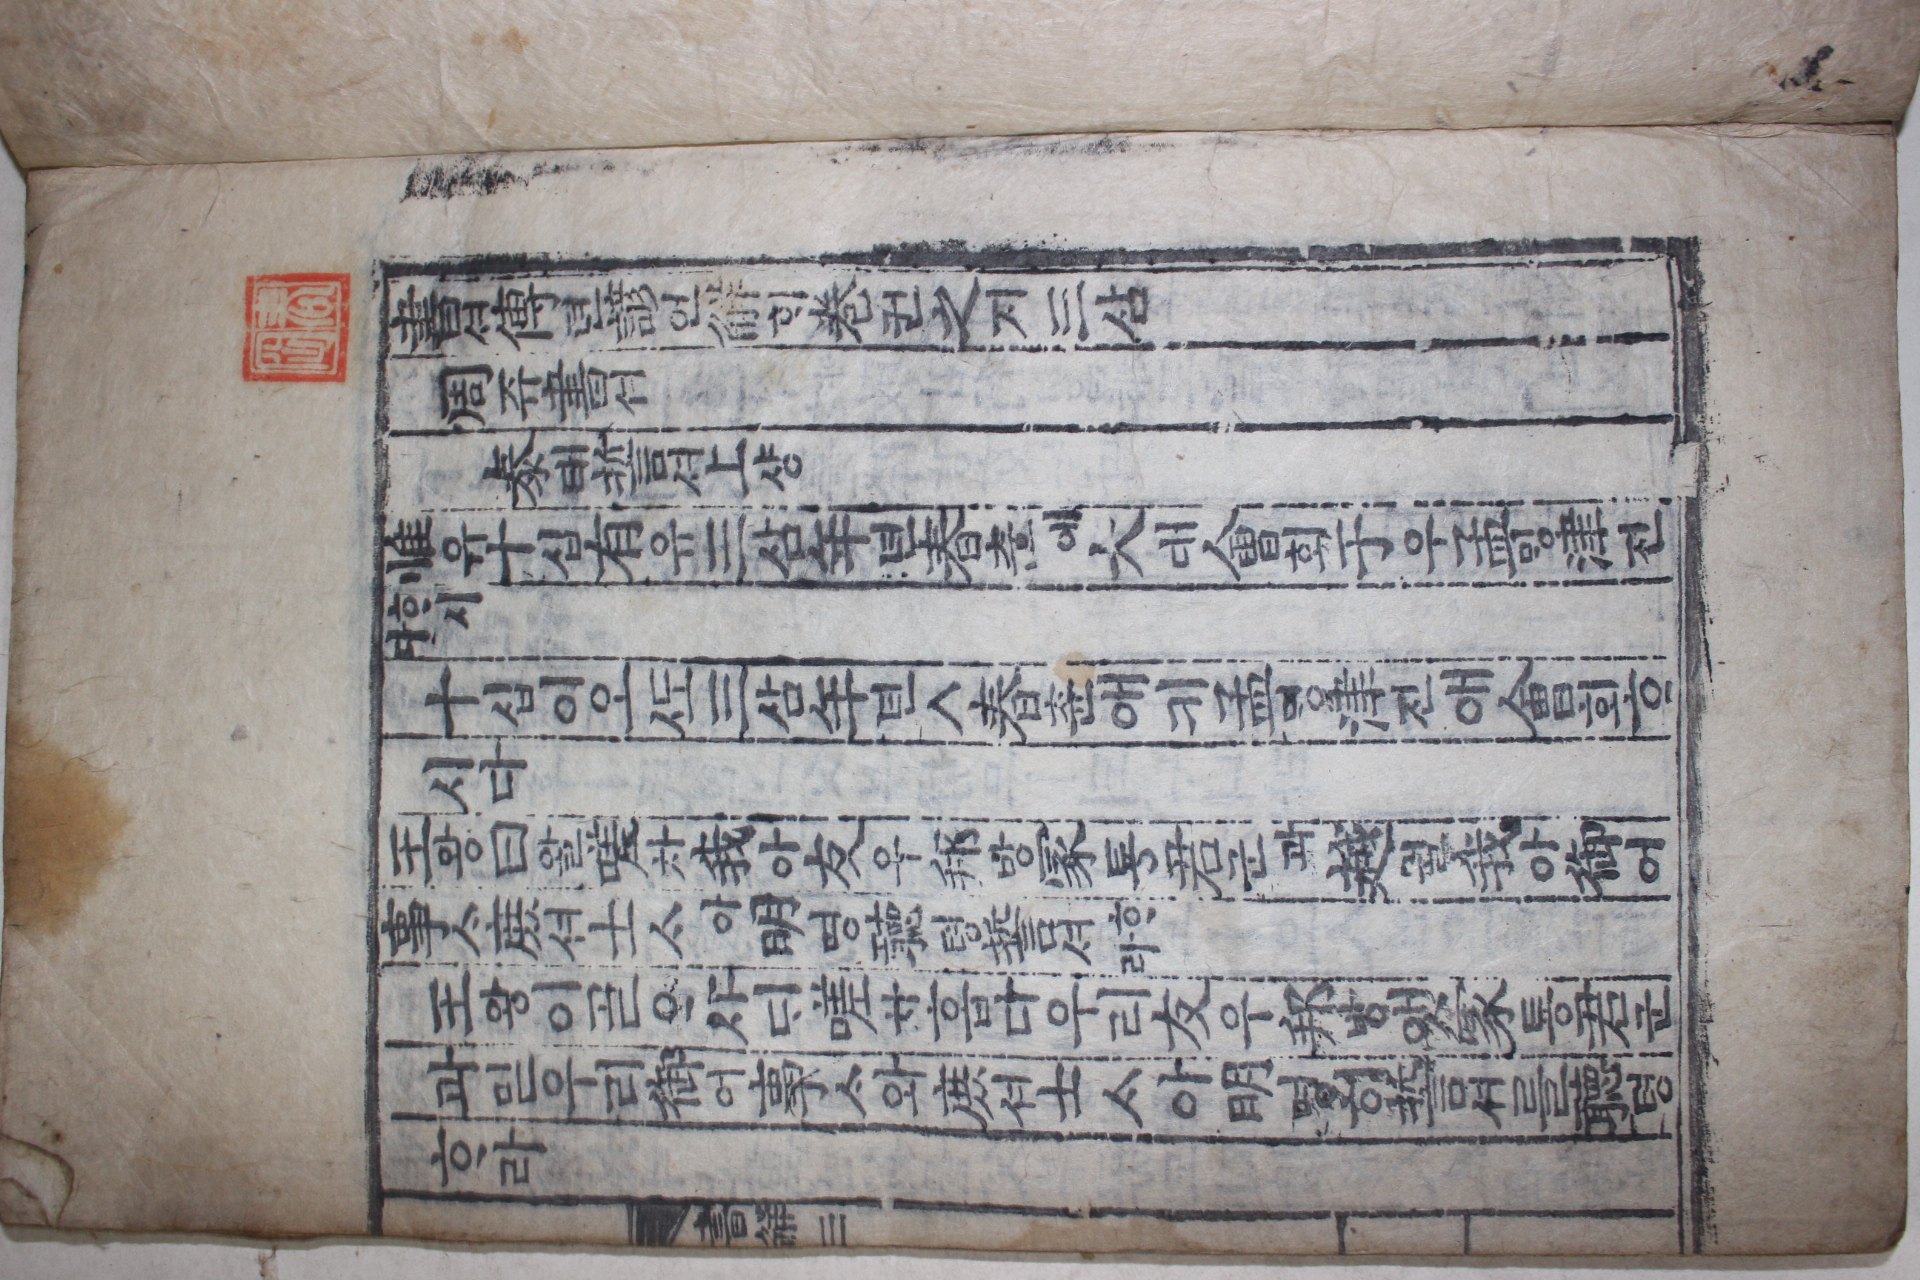 書셔傳뎐諺언解ᄒᆡ卷권之지三삼
周쥬書셔
泰태誓셔上샹
惟유十십有유三삼年년春츈에大대會회于우孟ᄆᆡᆼ津진
ᄒᆞ시다
十십이오ᄯᅩ三삼年년ㅅ春츈애키孟ᄆᆡᆼ津진애會회ᄒᆞ
시다
王왕曰왈嗟차我아友우邦방冢통君군과越월我아御어
事ᄉᆞ庶셔士ᄉᆞ아明명聽텽誓셔ᄒᆞ라
王왕이골ᄋᆞ샤ᄃᆡ嗟차홉다우리友우邦방앳冢통君군
과믿우리御어事ᄉᆞ와庶셔士ᄉᆞ아明명誓셔를聽텽
ᄒᆞ라
書解 三